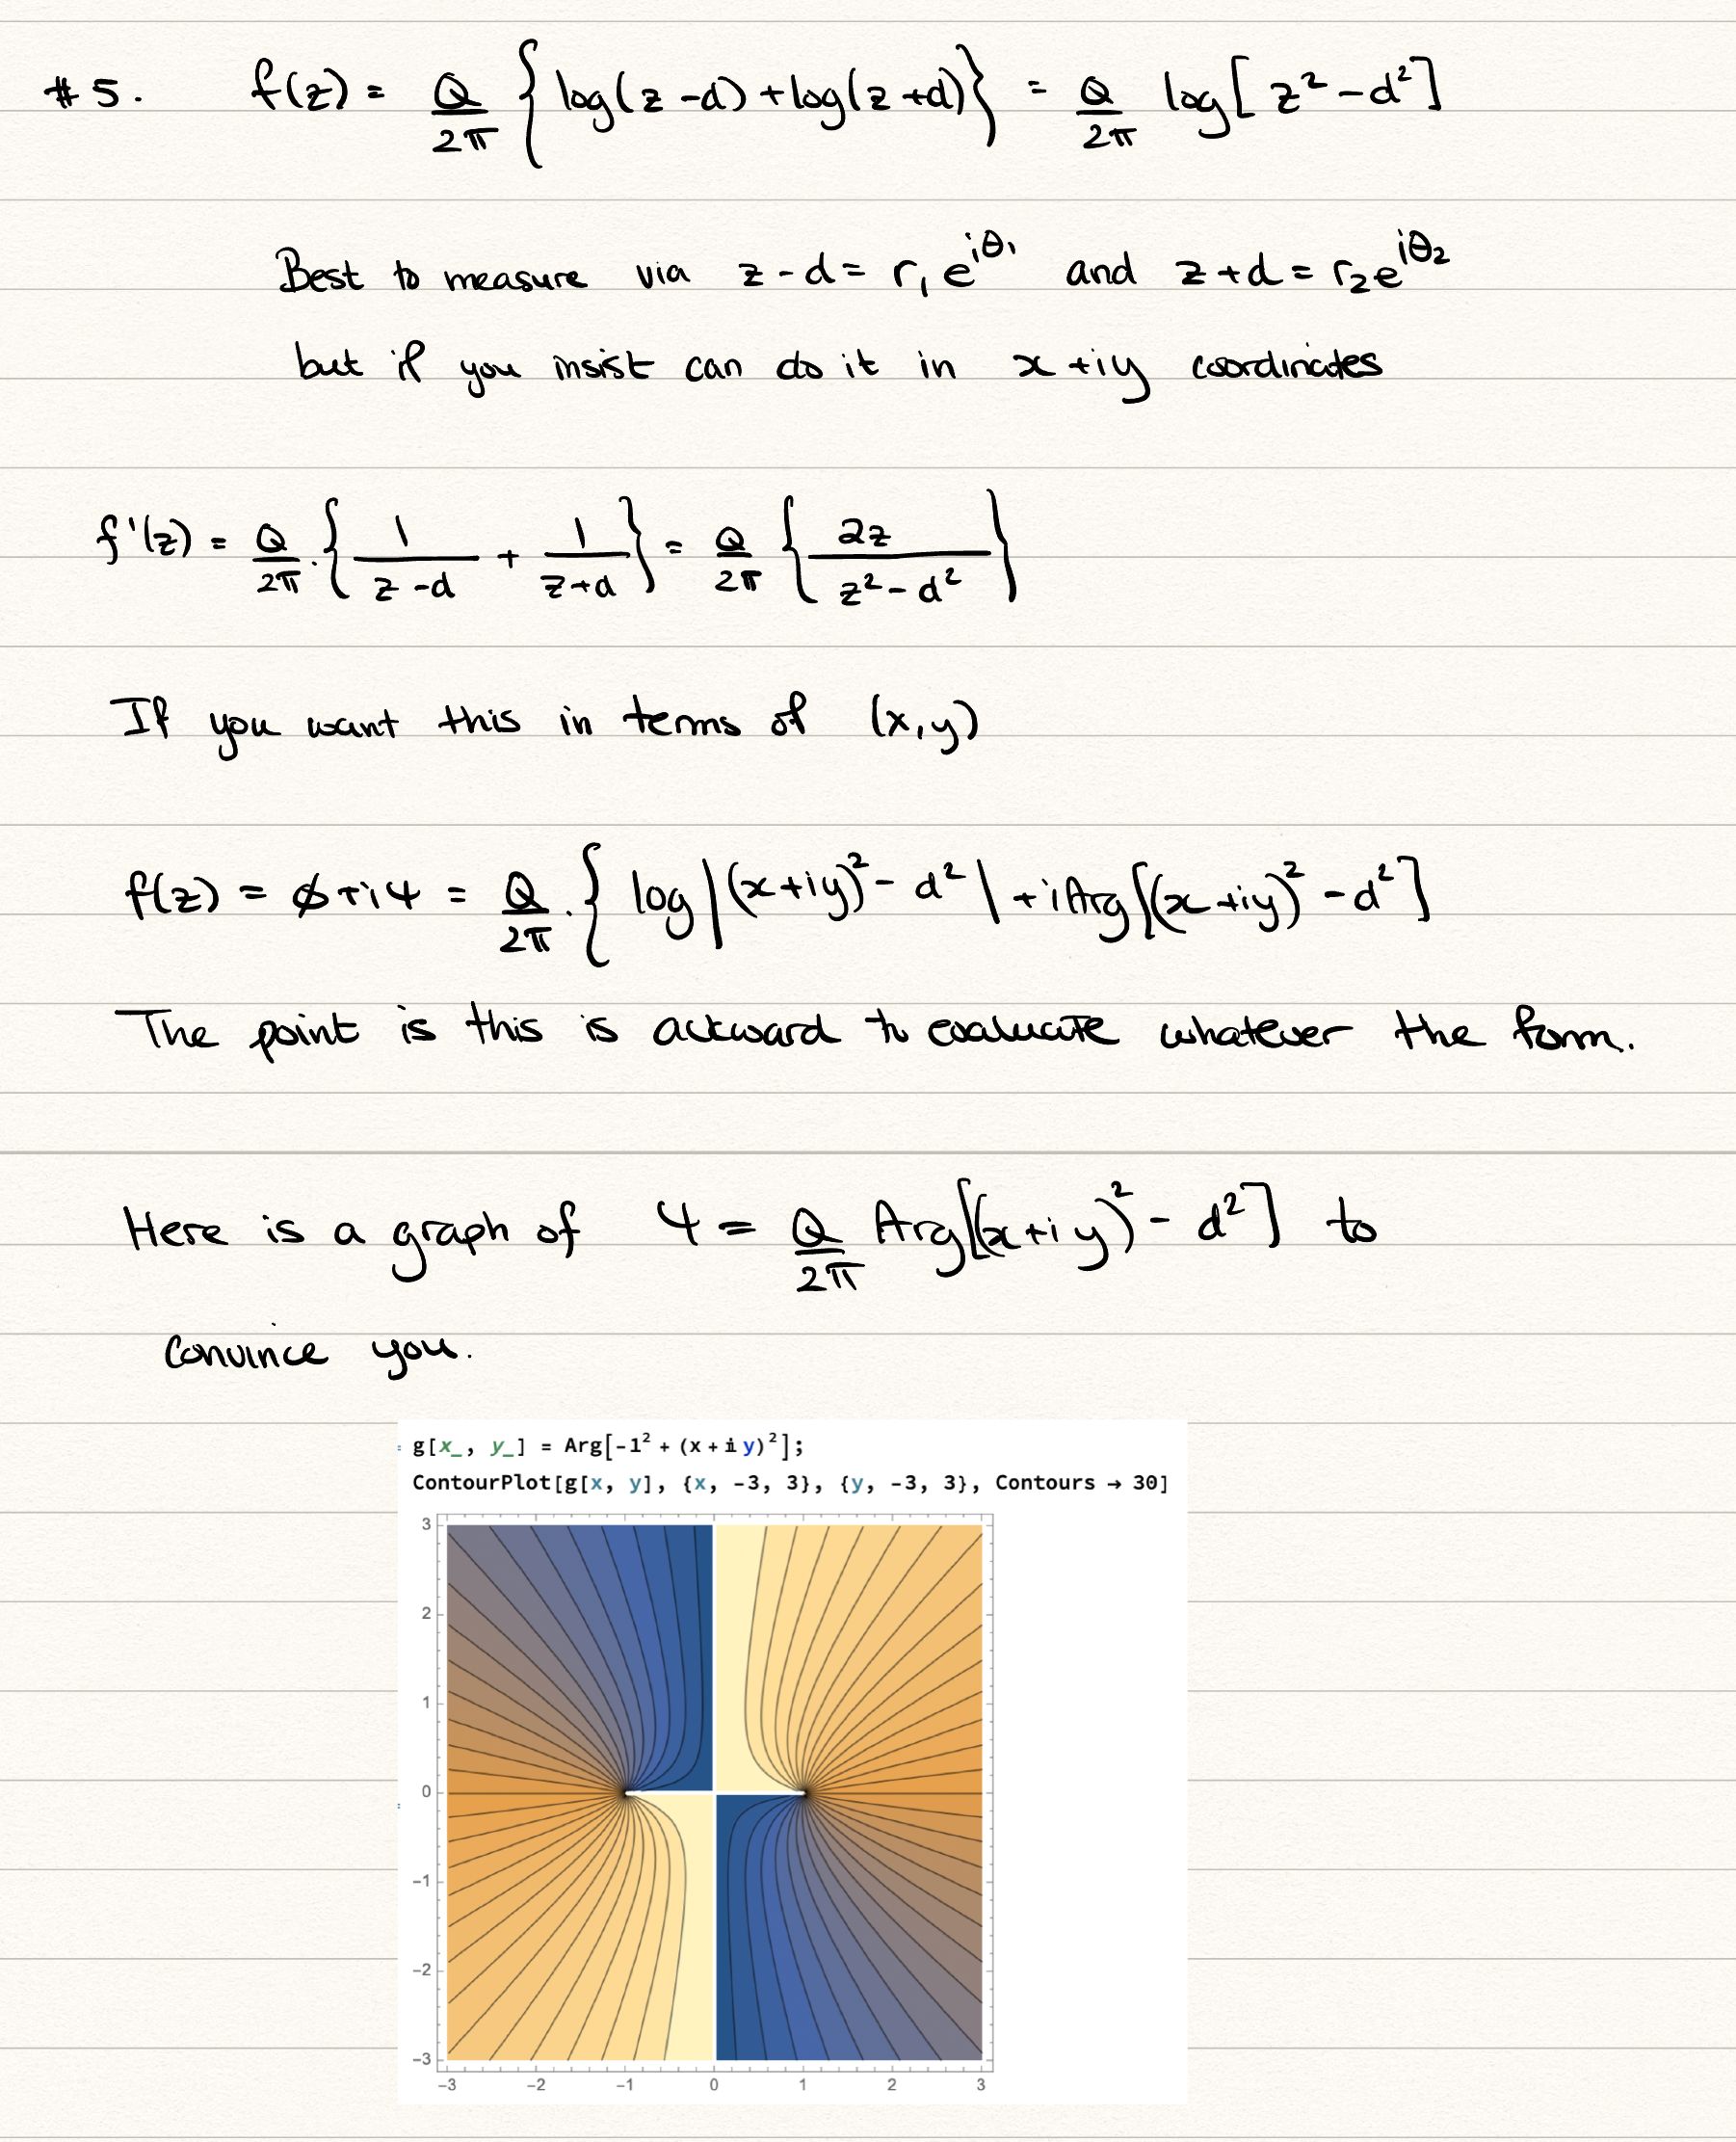 #5. f(z) = Q/2π { log(z-d) + log(z+d) } = Q/2π log[ z² - d² ]
Best to measure via z - d = r₁ e^{iθ₁} and z + d = r₂ e^{iθ₂}
but if you insist can do it in x + iy coordinates
f'(z) = Q/2π . { 1/(z-d) + 1/(z+d) } = Q/2π { 2z/(z² - d²) }
If you want this in terms of (x, y)
f(z) = ϕ + iψ = Q/2π . { log |(x+iy)² - d²| + i Arg[(x+iy)² - d²]
The point is this is ackward to evaluate whatever the form.
Here is a graph of ψ = Q/2π Arg[(x+iy)² - d²] to
convince you.
g[x_, y_] = Arg[-1² + (x + i y)²];
ContourPlot[g[x, y], {x, -3, 3}, {y, -3, 3}, Contours → 30]
3
2
1
0
-1
-2
-3
-3 -2 -1 0 1 2 3